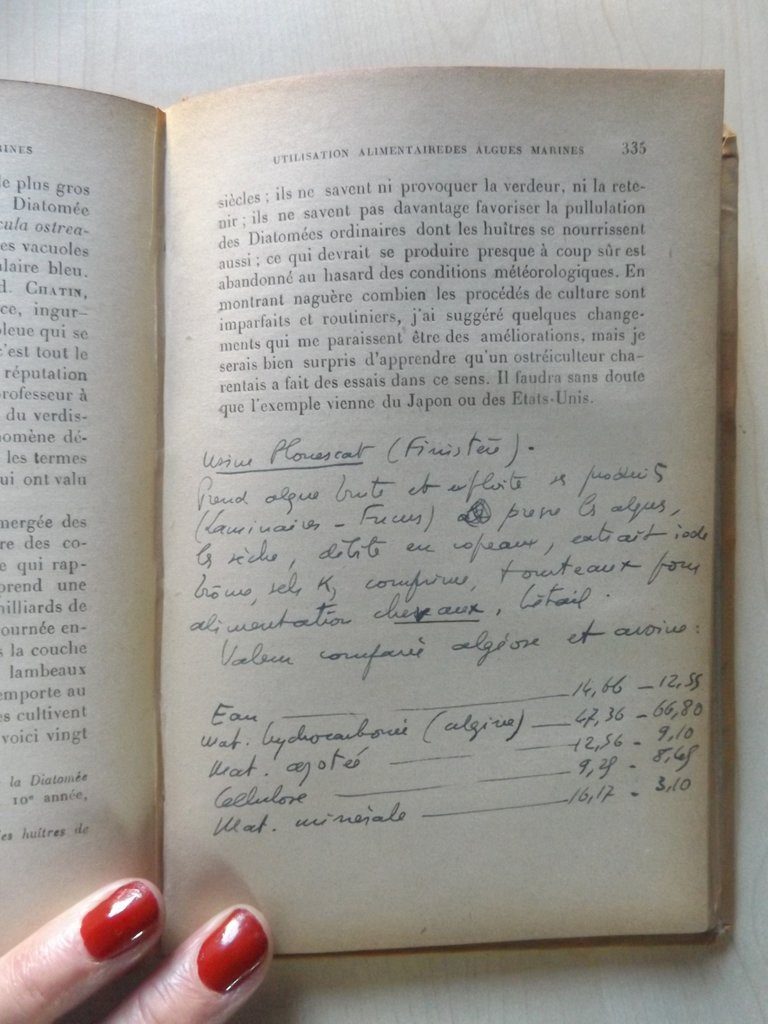 RINES
le plus gros
Diatomée
cula ostrea-
es vacuoles
laire bleu.
d. CHATIN,
ce, ingur-
leue qui se
c'est tout le
réputation
professeur à
du verdis-
nomène dé-
les termes
ui ont valu
mergée des
re des co-
e qui rap-
prend une
milliards de
ournée en-
s la couche
lambeaux
emporte au
es cultivent
voici vingt
la Diatomée
10e année,
les huîtres de
UTILISATION ALIMENTAIREDES ALGUES MARINES 335
siècles ; ils ne savent ni provoquer la verdeur, ni la rete-
nir ; ils ne savent pas davantage favoriser la pullulation
des Diatomées ordinaires dont les huîtres se nourrissent
aussi ; ce qui devrait se produire presque à coup sûr est
abandonné au hasard des conditions météorologiques. En
montrant naguère combien les procédés de culture sont
imparfaits et routiniers, j'ai suggéré quelques change-
ments qui me paraissent être des améliorations, mais je
serais bien surpris d'apprendre qu'un ostréiculteur cha-
rentais a fait des essais dans ce sens. Il faudra sans doute
que l'exemple vienne du Japon ou des Etats-Unis.
Usine Plouescat (Finistère).
Prend algue brute et exploite produits
(Laminaires - Fucus) presse les algues,
les sèche, débite en copeaux, extrait iode
brôme, sels K, comprime, tourteaux pour
alimentation chevaux, bétail.
Valeur comparée algéose et avoine :
Eau 14,66 - 12,55
Mat. hydrocarbonée (algine) 47,36 - 66,80
Mat. azotée 12,56 - 9,10
Cellulose 9,29 - 8,45
Mat. minérale 16,17 - 3,10